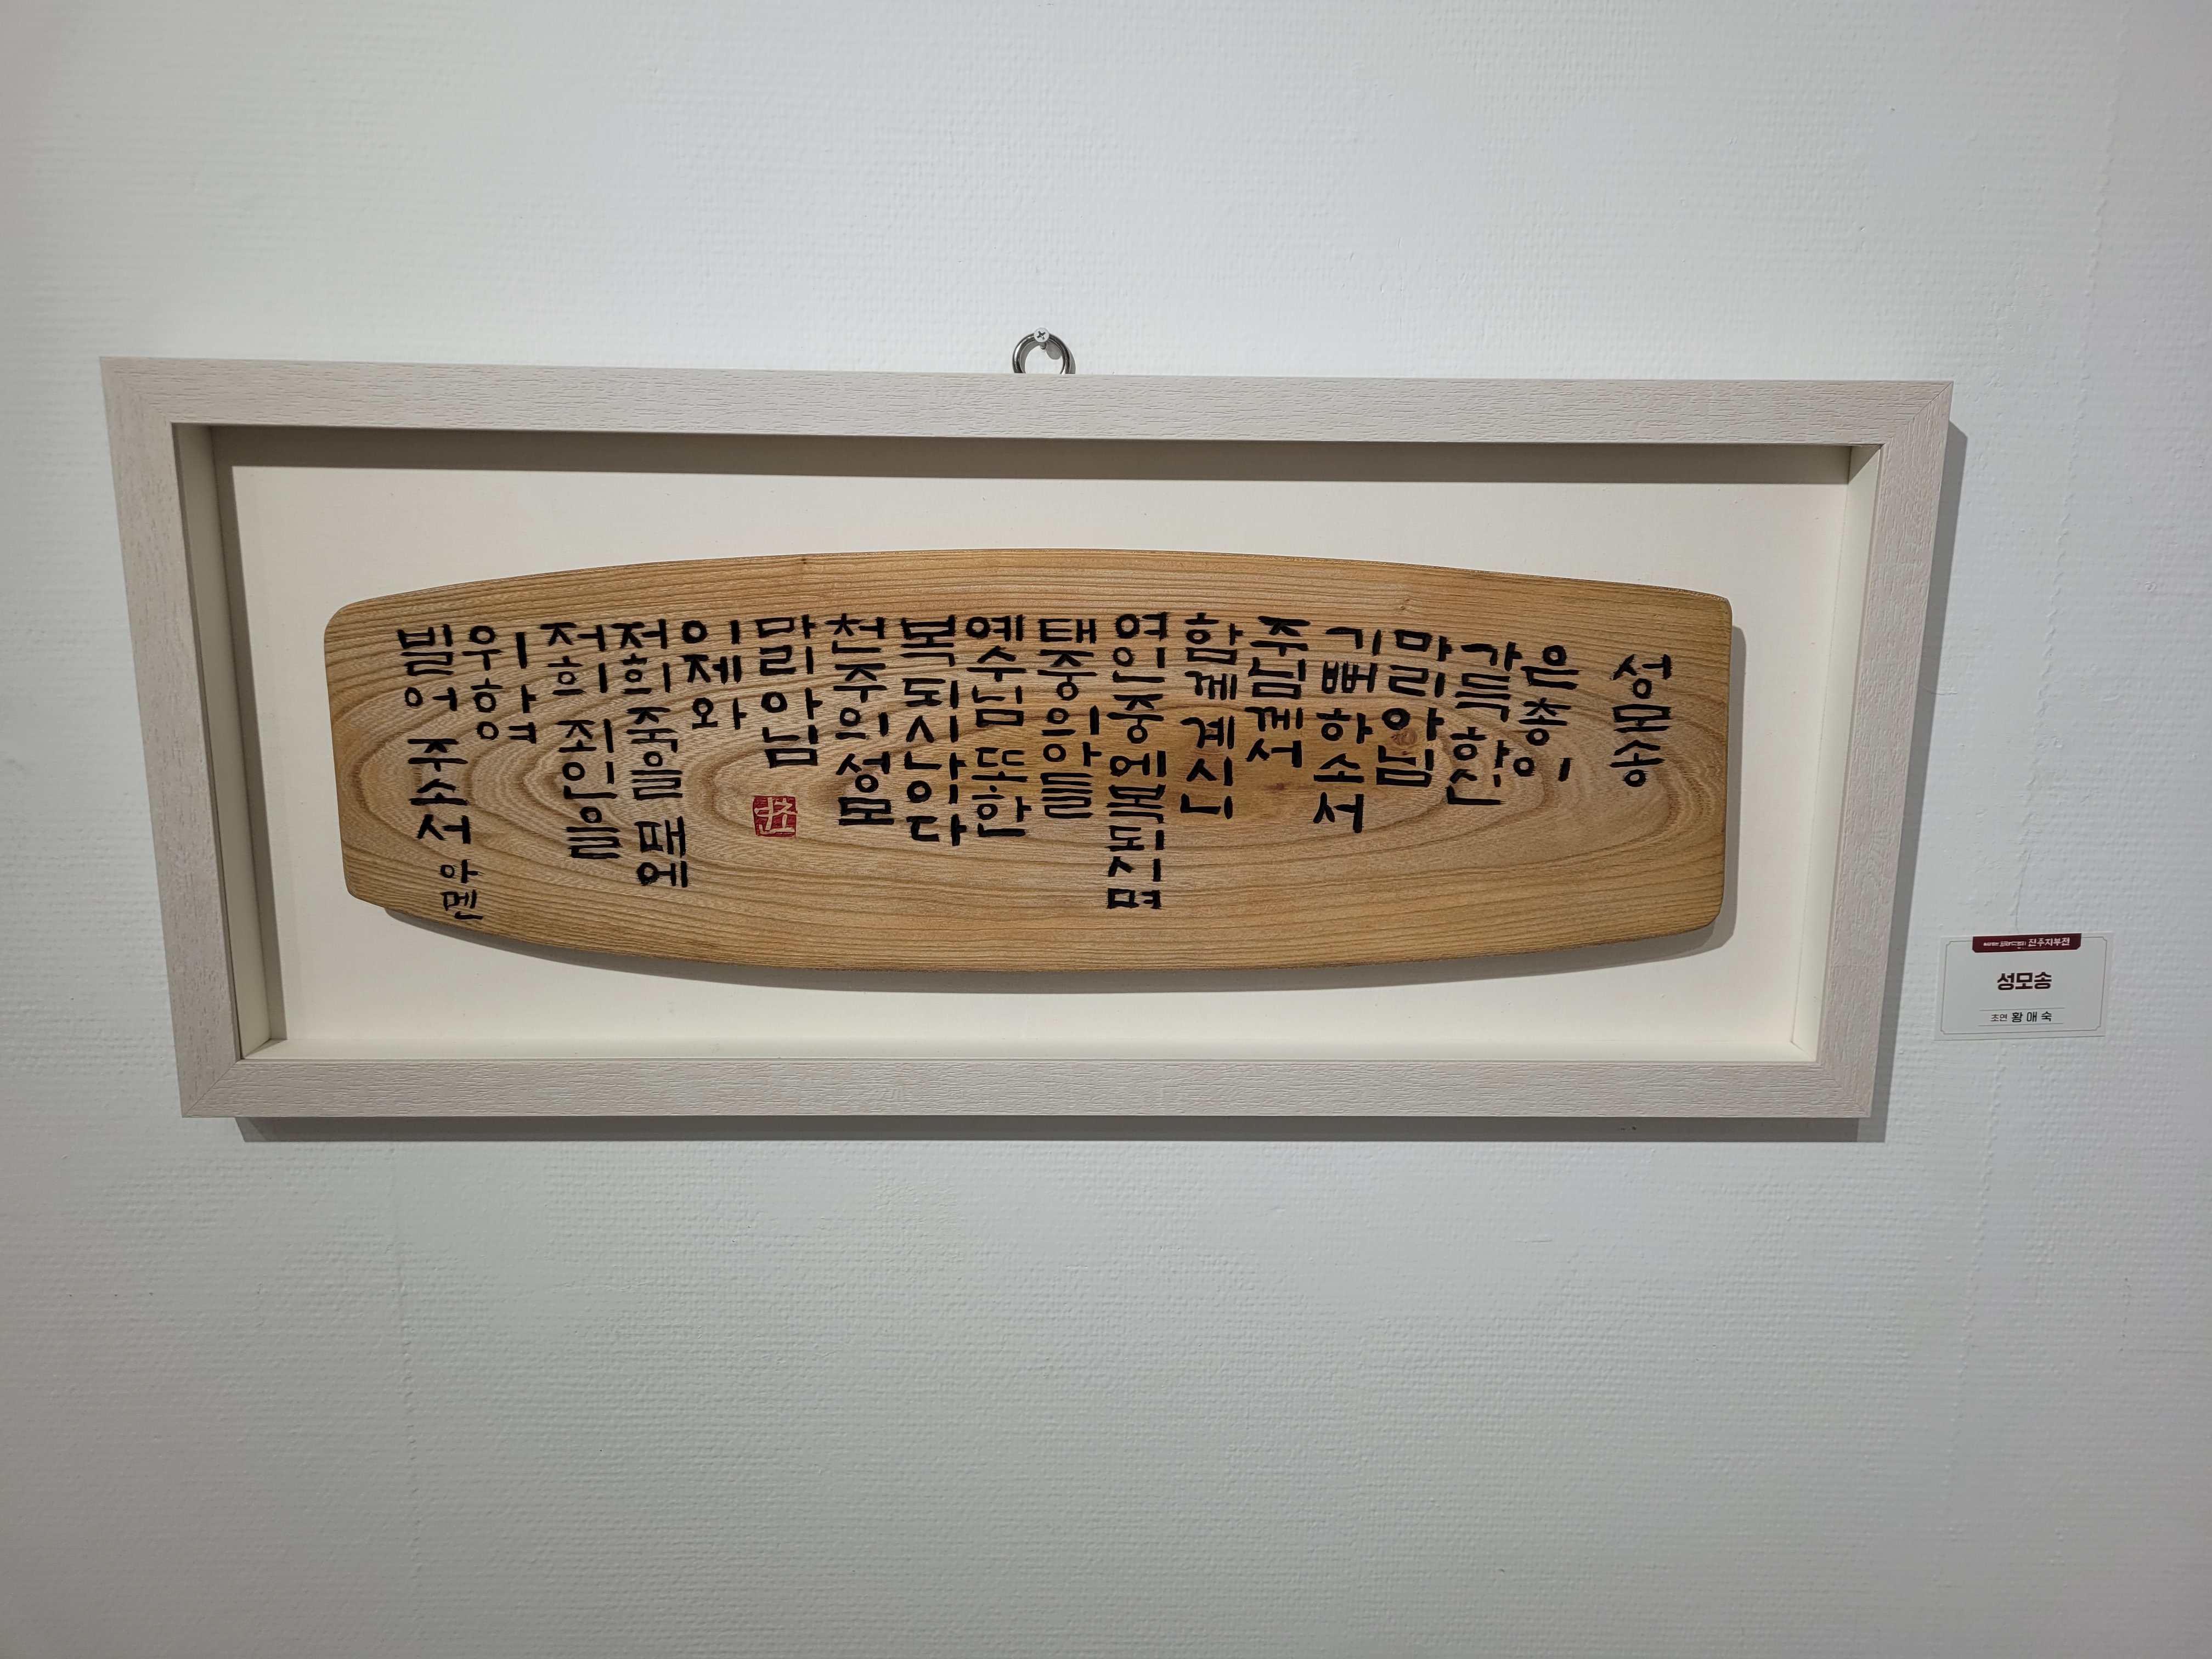 성모송
은총이
가득하신
마리아님
기뻐하소서
주님께서
함께 계시니
여인 중에 복되시며
태중의 아들
예수님 또한
복되시나이다
천주의 성모
마리아님
이제와
저희 죽을 때에
저희 죄인을
위하여
빌어 주소서 아멘
전주지부전
성모송
초연 황애숙